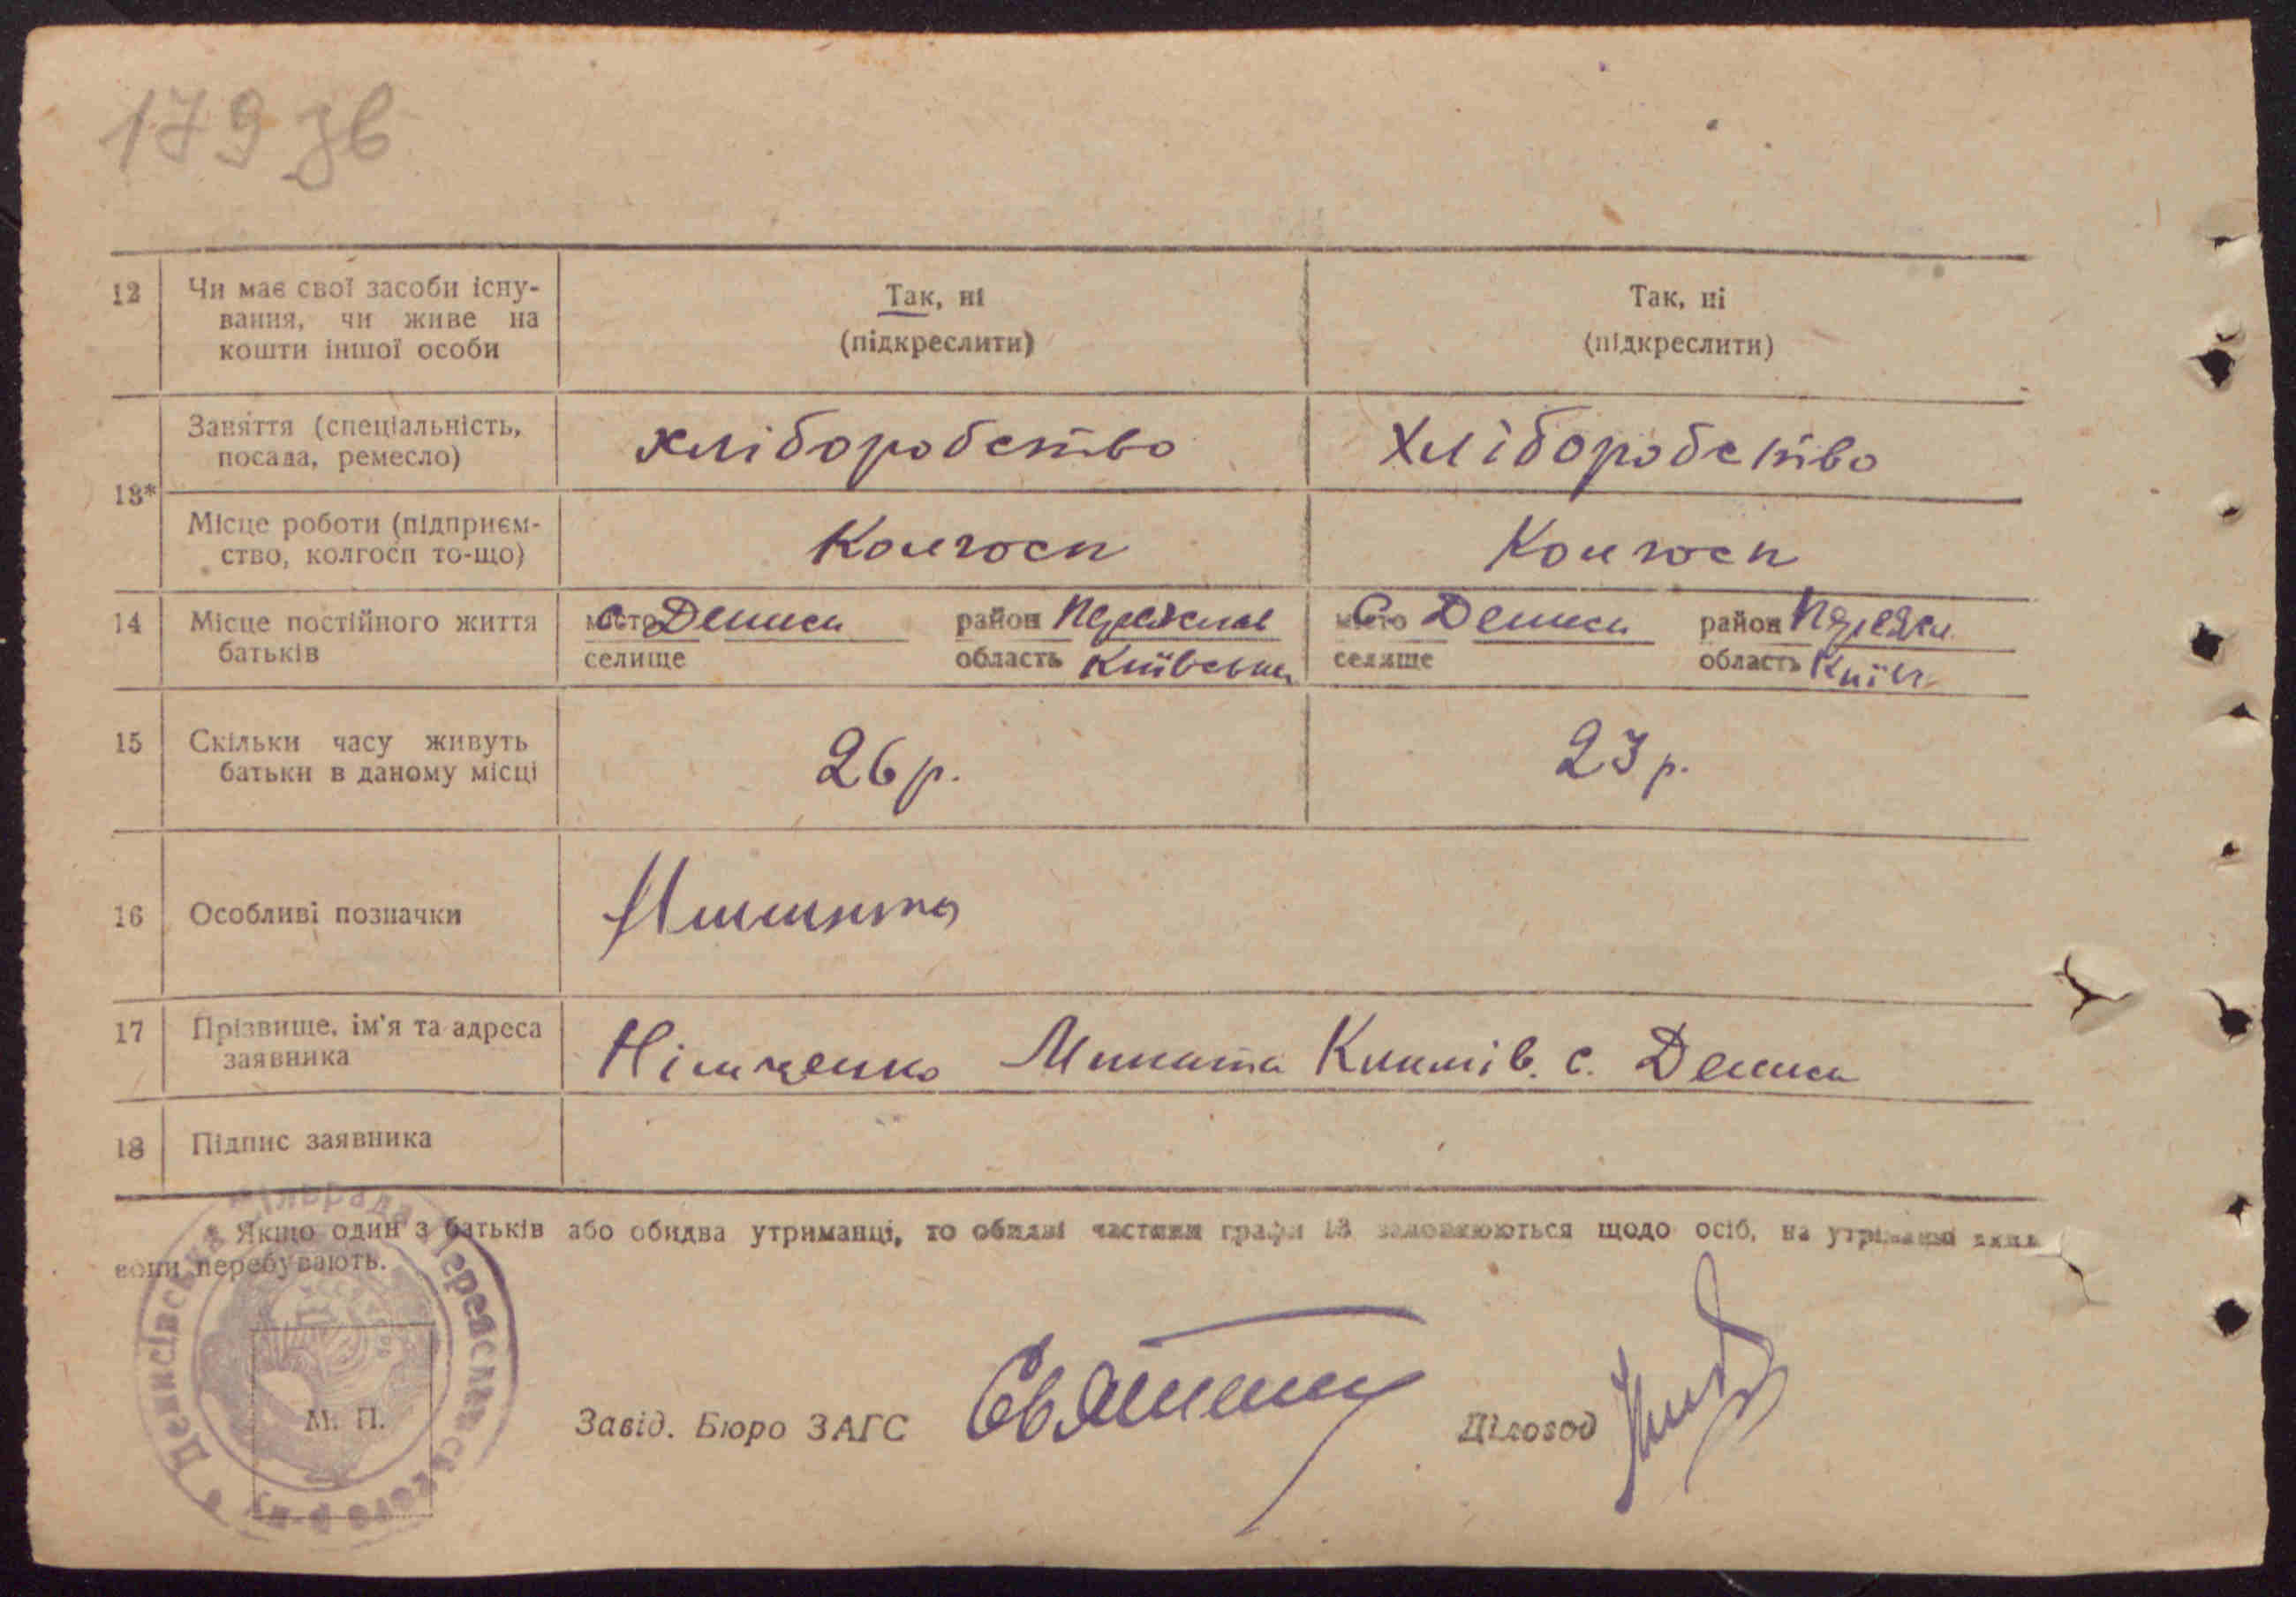 179 зв
12 Чи має свої засоби існу- Так, ні Так, ні
вання, чи живе на (підкреслити) (підкреслити)
кошти іншої особи
Заняття (спеціальність, хліборобство Хліборобство
посада, ремесло)
13*
Місце роботи (підприєм- Колгосп Колгосп
ство, колгосп то-що)
14 Місце постійного життя місто С. Дениси район Переяслав місто С. Дениси район
батьків селище область Київська селище область Київ
15 Скільки часу живуть 26 р. 23 р.
батьки в даному місці
16 Особливі позначки
17 Прізвище, ім'я та адреса Німченко Микита Климів. с. Дениси
заявника
18 Підпис заявника
Якщо один з батьків або обидва утриманці, то обидві частини графи 13 заповнюються щодо осіб, на утриманні яких
вони перебувають.
Денисівська сільрада Переяславського р-ну
М. П.
Завід. Бюро ЗАГС Діловод